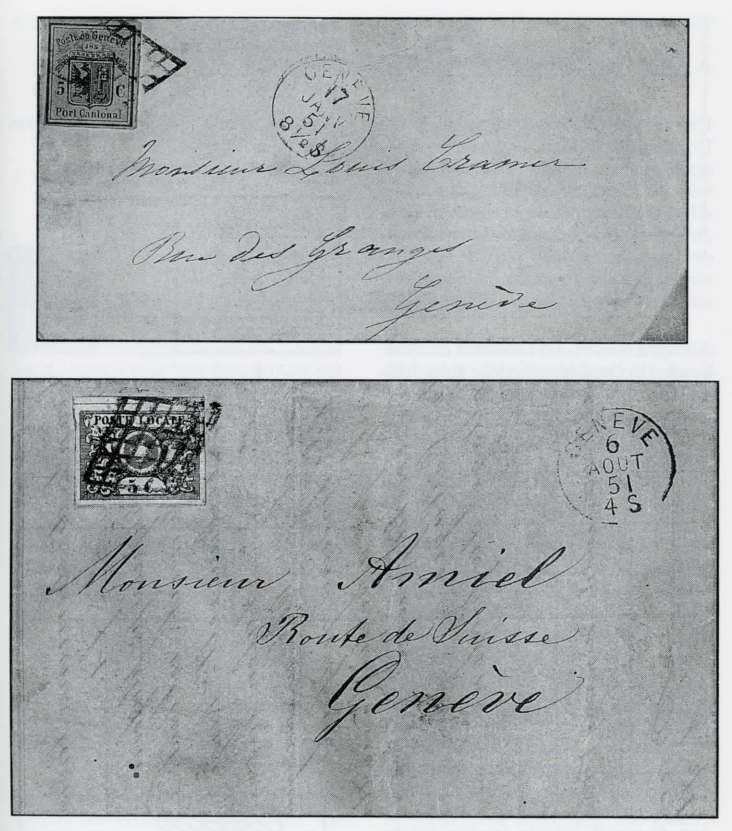 Poste de Genève
5 C
Port Cantonal
GENEVE
17
JANV
51
8½ S
Monsieur Louis Cramer
Rue des Granges
Genève
POSTE LOCALE
5 C.
GENEVE
6
AOUT
51
4 S
Monsieur Amiel
Route de Suisse
Genève